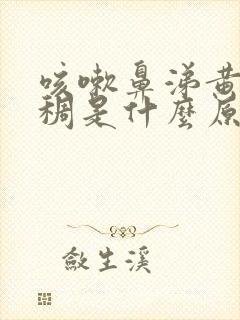 咳嗽鼻涕黄
稠是什麼原
敛生溪